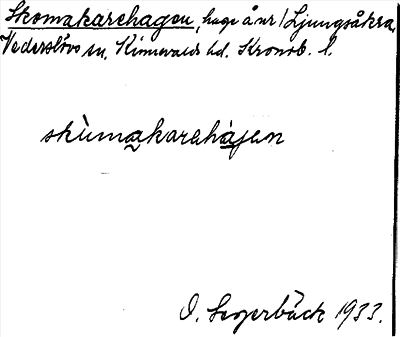 Skomakarehagen, hage å nr 1 Ljungsåkra,
Vederslövs sn, Kinnevalds hd. Kronob. l.
skùmakarehàjen
O. Segerbäck 1933.